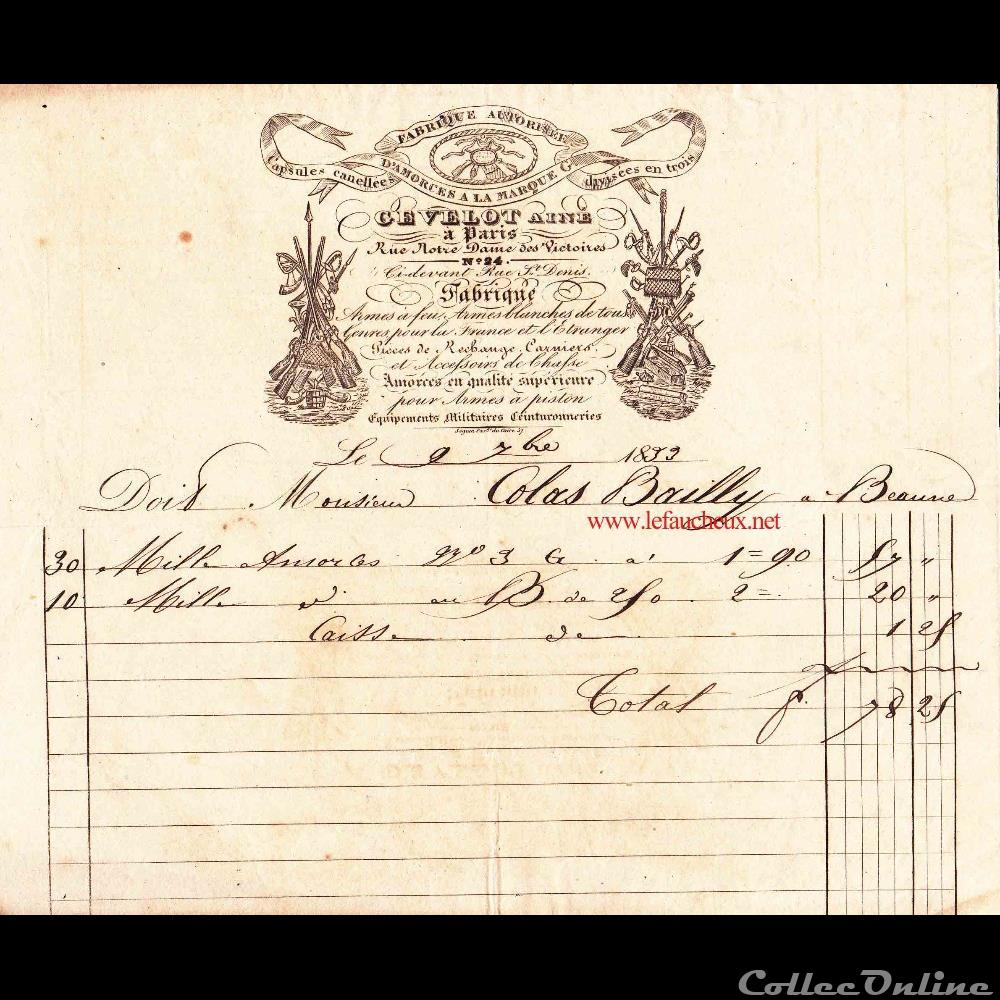 FABRIQUE AUTORISÉE
D'AMORCES A LA MARQUE G
Capsules canellées
divisées en trois
GEVELOT AINÉ
à Paris
Rue Notre Dame des Victoires
N° 24.
Ci-devant Rue St Denis.
Fabrique
Armes à feu, Armes blanches de tous
Genres pour la France et l'Etranger
Pièces de Rechange, Carniers,
et Accessoirs de Chasse
Amorces en qualité supérieure
pour Armes à piston
Equipements Militaires Ceinturonneries
Le 9 7bre 1833
Doit Monsieur Colas Bailly a Beaune
www.lefaucheux.net
30 Mille Amorces No 3 G a 1=90 57 "
10 Mille d° au B de 250 2= 20 "
Caisse de 1 25
Total f. 78 25
CollecOnline